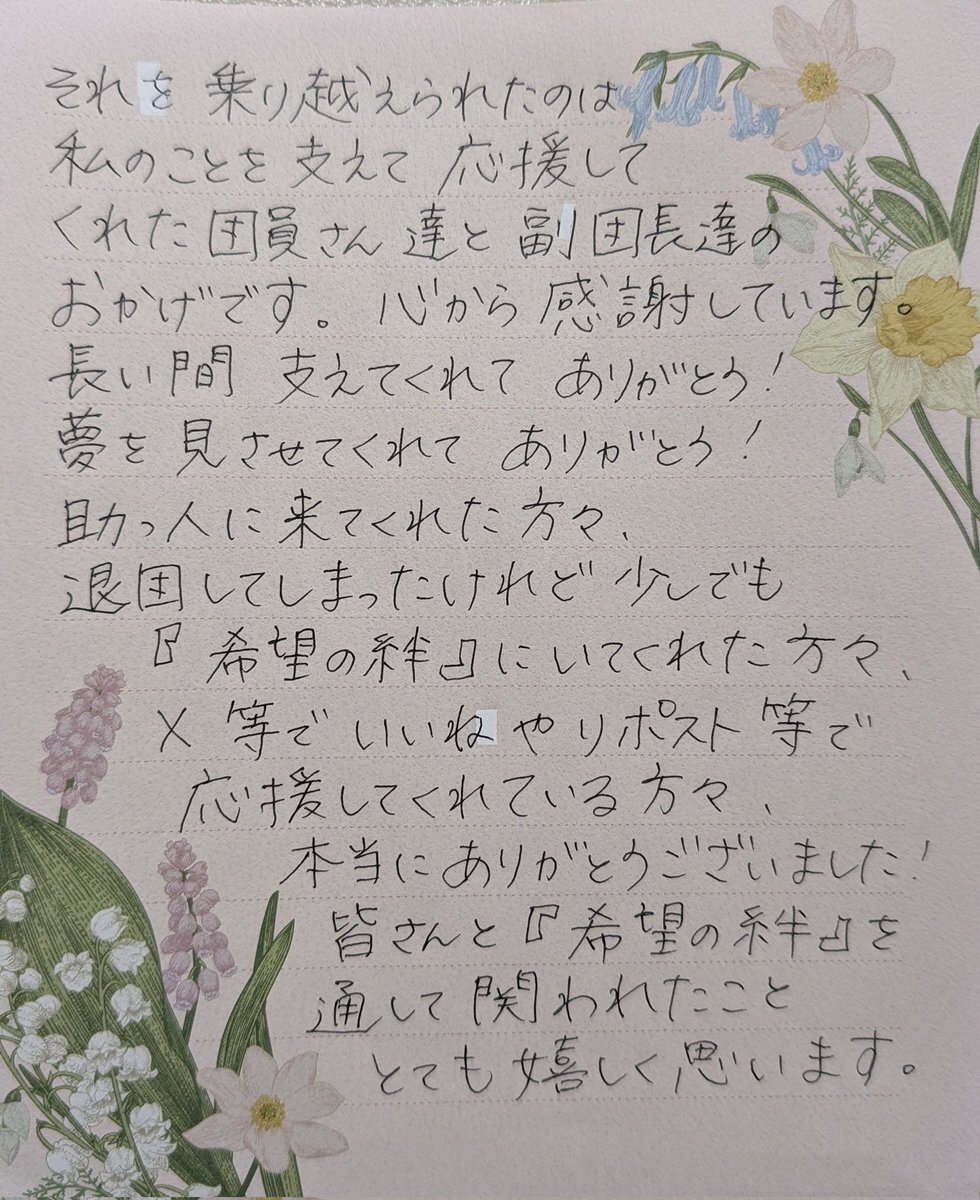 それを乗り越えられたのは
私のことを支えて応援して
くれた団員さん達と副団長達の
おかげです。心から感謝しています。
長い間支えてくれてありがとう！
夢を見させてくれてありがとう！
助っ人に来てくれた方々、
退団してしまったけれど少しでも
『希望の絆』にいてくれた方々、
X等でいいねやリポスト等で
応援してくれている方々、
本当にありがとうございました！
皆さんと『希望の絆』を
通して関われたこと
とても嬉しく思います。